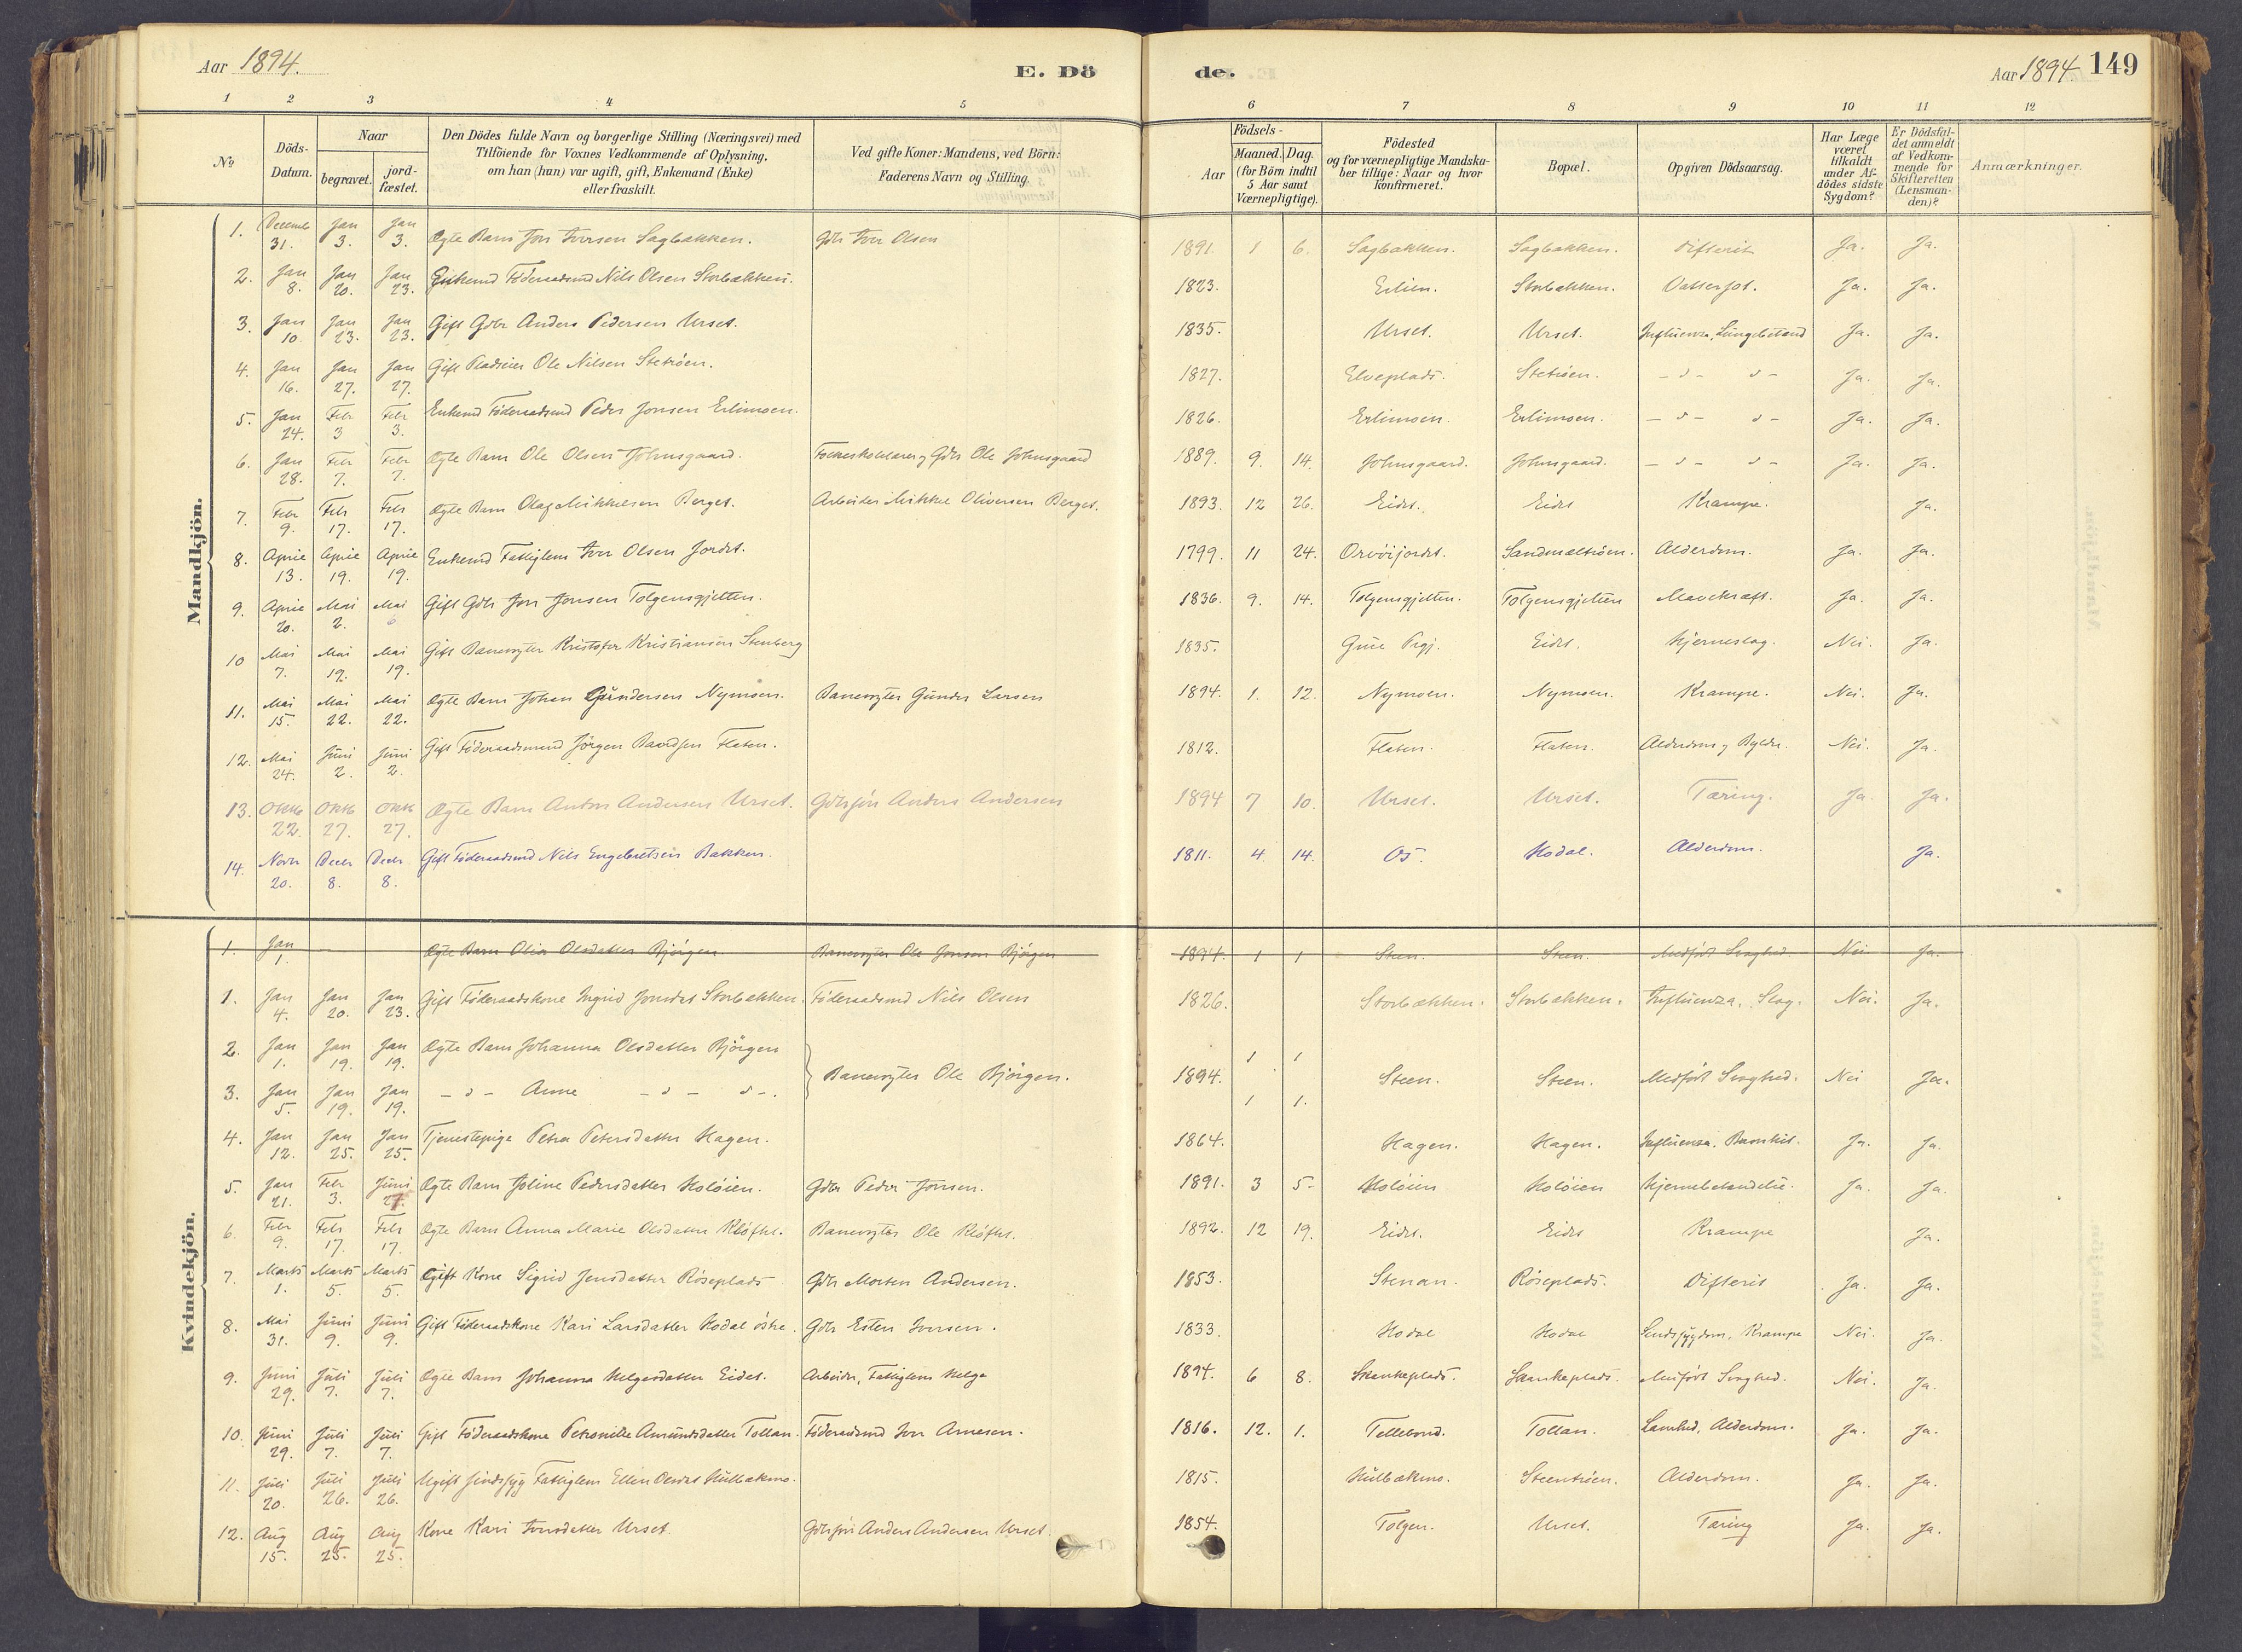 Aar 1894. E. Dö de. Aar 1894 149
1 2 3 4 5 6 7 8 9 10 11 12
No
Döds-Datum.
Naar
begravet.
jord-fæstet.
Den Dödes fulde Navn og borgerlige Stilling (Næringsvei) med
Tilföiende for Voxnes Vedkommende af Oplysning,
om han (hun) var ugift, gift, Enkemand (Enke)
eller fraskilt.
Ved gifte Koner: Mandens, ved Börn:
Faderens Navn og Stilling.
Födsels-
Aar
Maaned. Dag.
(for Börn indtil
5 Aar samt
Værnepligtige).
Födested
og for værnepligtige Mandska-
ber tillige: Naar og hvor
konfirmeret.
Bopæl.
Opgiven Dödsaarsag.
Har Læge
været
tilkaldt
under Af-
dödes sidste
Sygdom?
Er Dödsfal-
det anmeldt
af Vedkom-
mende for
Skifteretten
(Lensman-
den)?
Anmærkninger.
Mandkjön.
1. Decemb 31. Jan 3. Jan 3. Ægte Barn Jon Iversen Sagbakken. Gbr Iver Olsen 1891. 1 6. Sagbakken. Sagbakken. Difterit Ja. Ja.
2. Jan 8. Jan 20. Jan 23. Enkemd Föderaadsmd Nils Olsen Storbækken. 1823. Erlien. Storbækken. Vattersot. Ja. Ja.
3. Jan 10. Jan 23. Jan 23. Gift Gbr Anders Pedersen Urset. 1835. Urset. Urset. Influenza, Lungebetænd Ja. Ja.
4. Jan 16. Jan 27. Jan 27. Gift Pladseier Ole Nilsen Stetröen. 1827. Elveplads. Stetröen. - d - d - Ja. Ja.
5. Jan 24. Febr 3 Febr 3. Enkemd Föderaadsmd Peder Jonsen Erlimoen. 1826. Erlimoen. Erlimoen. - d - d - Ja. Ja.
6. Jan 28. Febr 7. Febr 7. Ægte Barn Ole Olsen Johnsgaard. Folkeskolelærer og Gbr Ole Johnsgaard 1889. 9. 14. Johnsgaard. Johnsgaard. - d - d - Ja. Ja.
7. Febr 9. Febr 17. Febr 17. Ægte Barn Olaf Mikkelsen Berget. Arbeider Mikkel Oliversen Berget. 1893. 12 26. Eidet. Eidet Krampe. Ja.
8. April 13. April 19. April 19. Enkemd Fattiglem Iver Olsen Jordet. 1799. 11 24. Orvöijordet. Sandmæltröen. Alderdom. Ja. Ja.
9. April 20. Mai 2. Mai 6 Gift Gbr Jon Jonsen Tolgensgjelten. 1836. 9. 14. Tolgensgjelten. Tolgensgjelten Mavekræft. Ja. Ja.
10 Mai 7. Mai 19. Mai 19. Gift Banevogter Kristofer Kristiansen Stenberg 1835. Grue Prgj. Eidet. Hjerneslag. Nei. Ja.
11. Mai 15. Mai 22. Mai 22. Ægte Barn Johan Gundersen Nymoen. Banevogter Gunder Larsen 1894. 1. 12. Nymoen. Nymoen. Krampe. Nei. Ja.
12. Mai 24. Juni 2. Juni 2. Gift Föderaadsmand Jörgen Baardsen Flaten. 1812. Flaten. Flaten. Alderdom og Bylder. Nei. Ja.
13. Oktb 22. Oktb 27. Oktb 27. Ægte Barn Anton Andersen Urset. Gbrsön Anders Andersen 1894 7 10. Urset. Urset. Tæring. Ja. Ja.
14. Novbr 20. Decbr 8. Decbr 8. Gift Föderaadsmd Nils Engebretsen Bakken. 1811. 4. 14. Os. Hodal. Alderdom. Ja.
Kvindekjön.
1. Jan 1. Ægte Barn Olia Olsdatter Bjørgen Banevogter Ole Jonsen Bjørgen 1894. 1 1 Steen. Steen. Medfødt Svaghed. Nei Ja.
1. Jan 4. Jan 20. Jan 23. Gift Föderaadskone Ingrid Jonsdat Storbækken. Föderaadsmd Nils Olsen 1826. Storbækken. Storbækken. Influenza. Slag. Nei. Ja.
2. Jan 1. Jan 19. Jan 19. Ægte Barn Johanna Olsdatter Bjørgen 1 1
Banevogter Ole Bjørgen. 1894. Steen. Steen. Medfødt Svaghed. Nei Ja.
3. Jan 5. Jan 19. Jan 19. - d - Anne - d - d -. 1 1.
4. Jan 12. Jan 25. Jan 25. Tjenestepige Petra Petersdatter Hagen. 1864. Hagen. Hagen. Influenza. Ja. Ja.
5. Jan 21. Febr 3. Juni Ægte Barn Joline Pedersdatter Holöien. Gbr Peder Jonsen. 1891. 3 5- Holöien Holöien Hjernebetændelse. Ja. Ja.
6. Febr 9. Febr 17. Febr 17. Ægte Barn Anna Marie Olsdatter Klöfthl. Banevogter Ole Klöfthl. 1892. 12 19. Eidet. Eidet Krampe Ja.
7. Marts 1. Marts 5. Marts 5. Gift Kone Sigrid Jensdatter Röseplads Gbr Morten Andersen. 1853. Stenan. Röseplads. Difterit Ja. Ja.
8. Mai 31. Juni 9. Juni 9. Gift Föderaadskone Kari Larsdatter Hodal östre. Gbr Esten Iversen. 1833. Hodal Hodal Sindssygdom, Krampe Nei. Ja.
9. Juni 29. Juli 7. Juli 7. Ægte Barn Johanna Helgesdatter Eidet. Arbeider, Fattiglem Helge 1894. 6 8. Skankeplads. Skankeplads. Medfødt Svaghed. Nei. Ja.
10. Juni 29. Juli 7. Juli 7. Gift Föderaadskone Petronille Amundsdatter Tollan. Föderaadsmd Iver Arnesen. 1816. 12. 1. Tellebond. Tollan. Lamhed, Alderdom. Ja. Ja.
11. Juli 20. Juli 26. Juli 26. Ugift sindssyg Fattiglem Ellen Olsdat Hulbækmo. 1815. Hulbækmo. Steentröen. Alderdom. Ja. Ja.
12. Aug 15. Aug 25. Aug 25. Kone Kari Iversdatter Urset. Gbrsön Anders Andersen Urset. 1854. Tolgen. Urset. Tæring Ja. Ja.